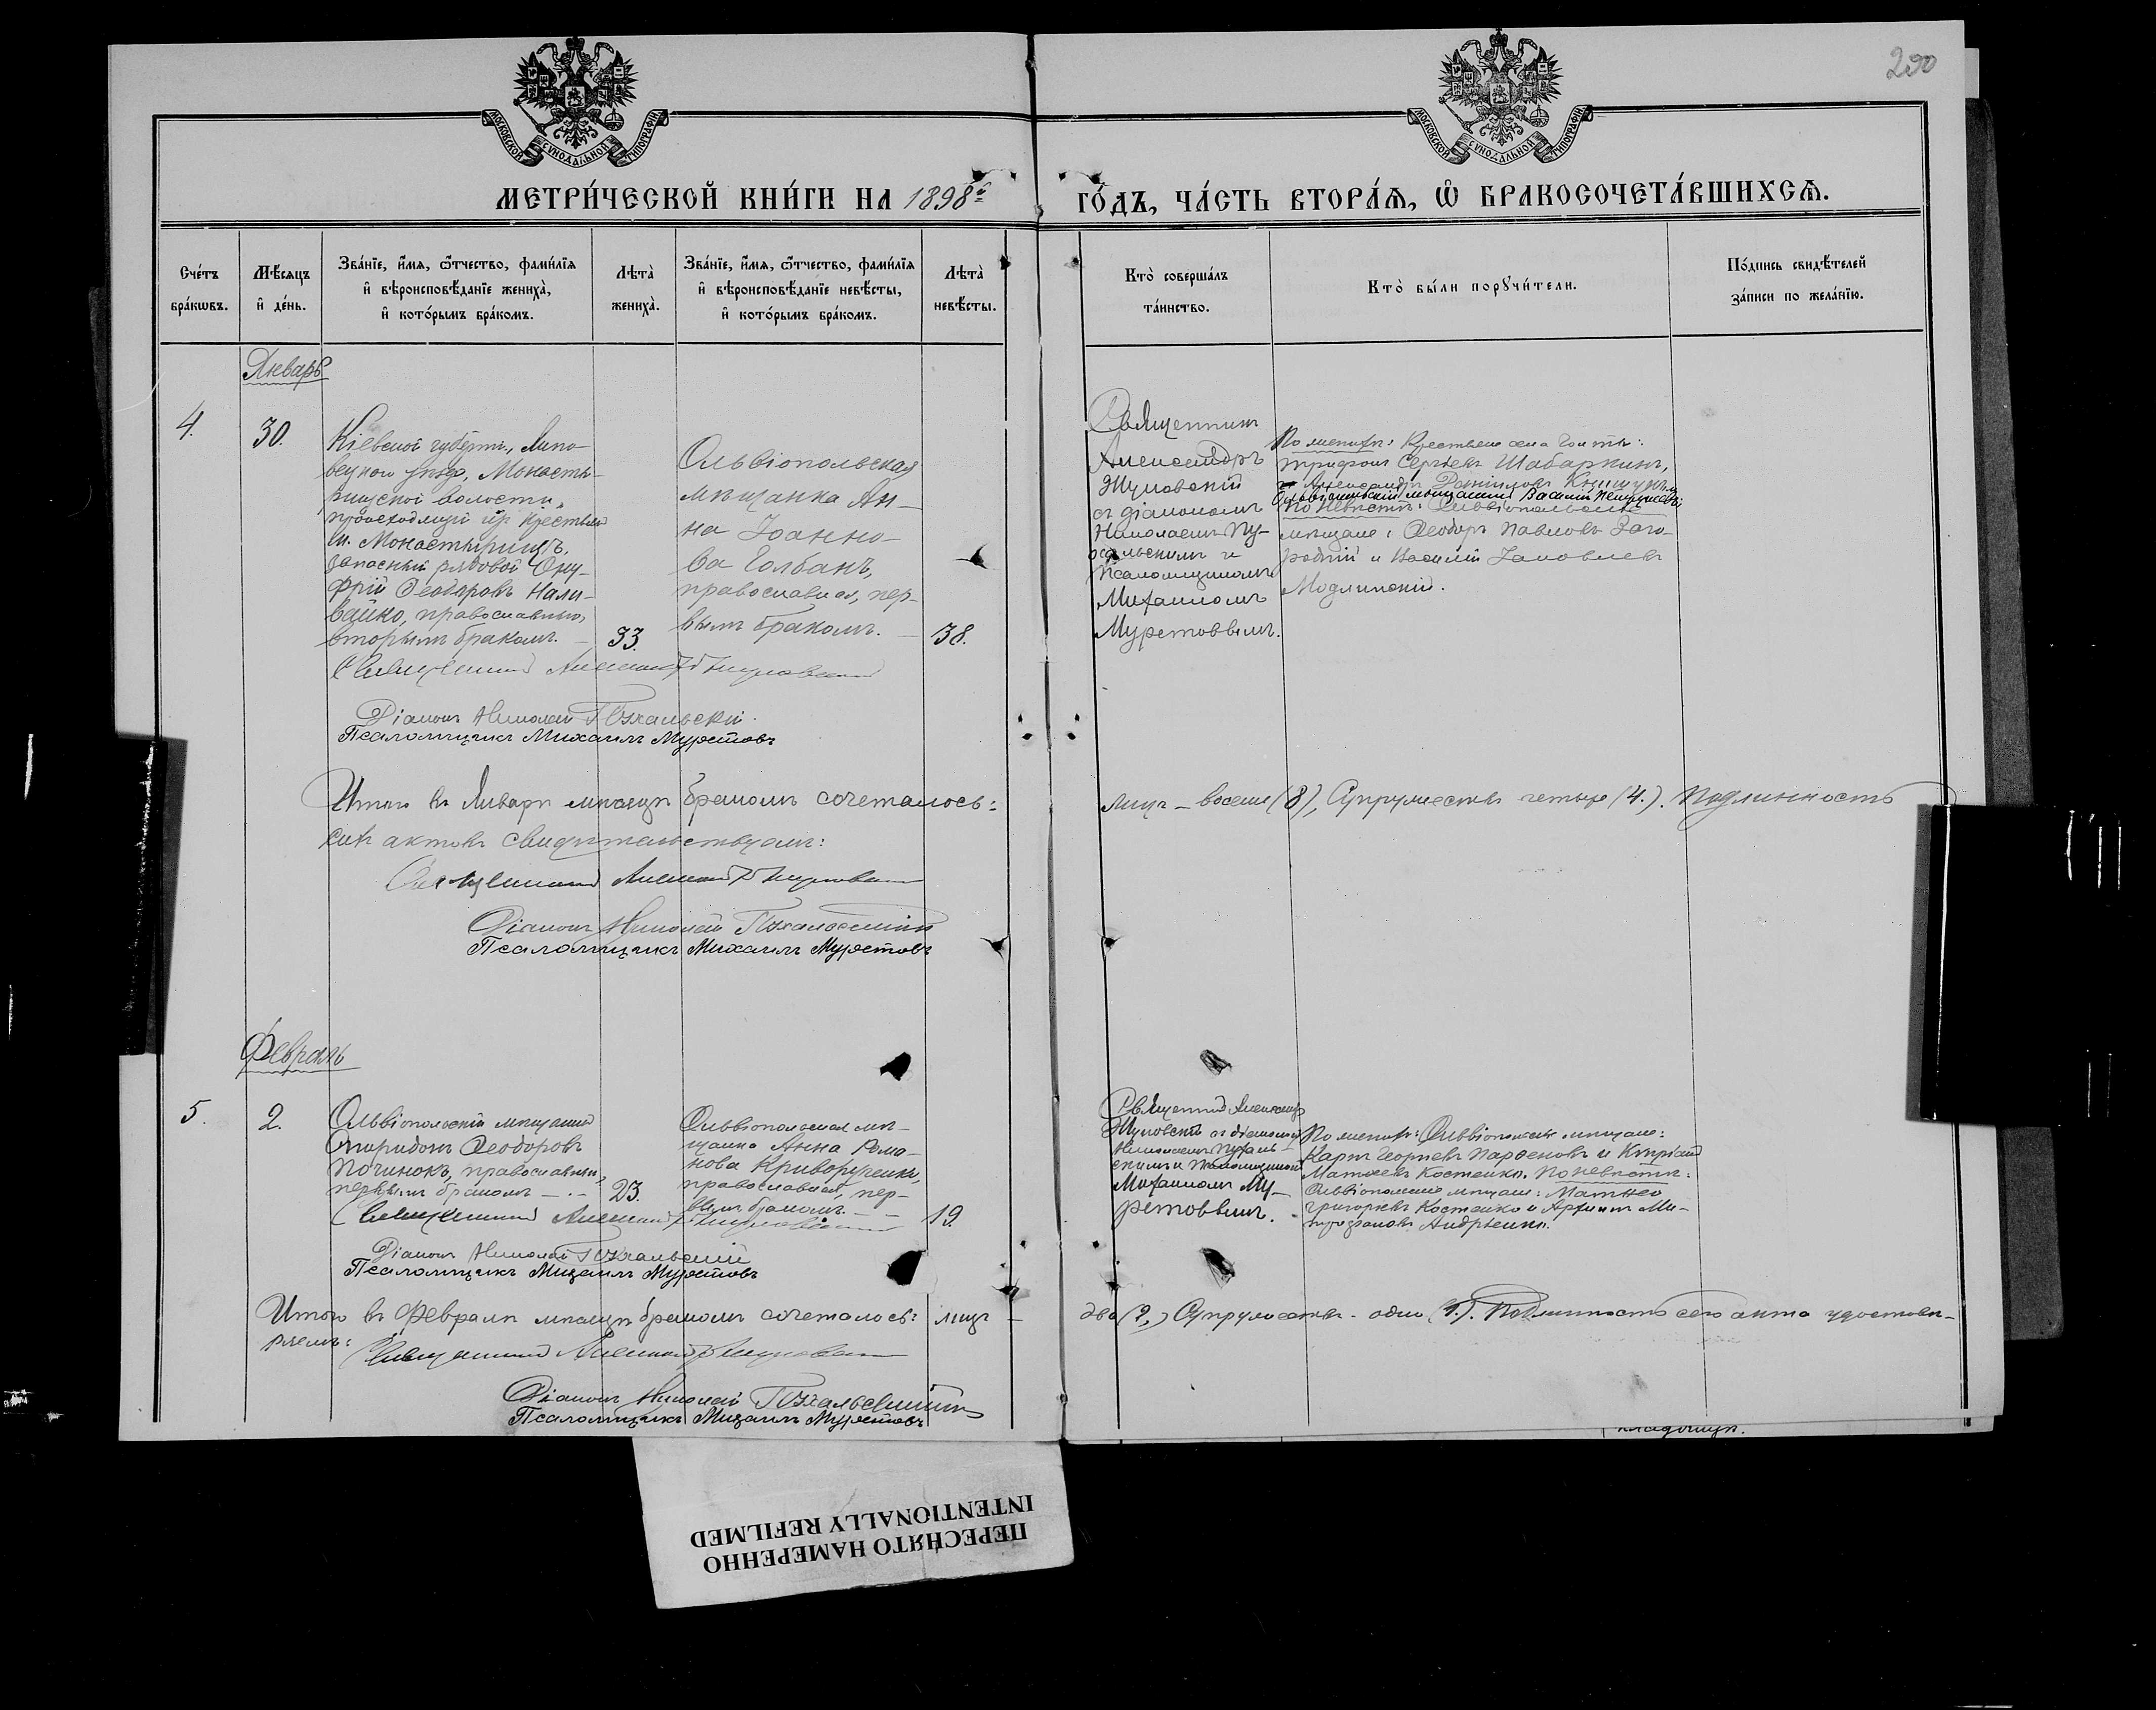 290
МОСКОВСКОЙ СѴНОДАЛЬНОЙ ТИПОГРАФІИ
МОСКОВСКОЙ СѴНОДАЛЬНОЙ ТИПОГРАФІИ
МЕТРИ́ЧЕСКОЙ КНИ́ГИ НА 1898й
ГО́ДЪ, ЧА́СТЬ ВТОРА́Ѧ, Ѡ҆ БРАКОСОЧЕТА́ВШИХСѦ.
Сче́тъ
бра́кѡвъ.
Мѣ́сяцъ
и҆ де́нь.
Зва́нїе, и҆́мя, ѻ҆́тчество, фами́лїя
и҆ вѣроисповѣ́данїе жениха̀,
и҆ кото́рымъ бра́комъ.
Лѣта̀
жениха̀.
Зва́нїе, и҆́мя, ѻ҆́тчество, фами́лїя
и҆ вѣроисповѣ́данїе невѣ́сты,
и҆ кото́рымъ бра́комъ.
Лѣта̀
невѣ́сты.
Кто̀ соверша́лъ
та́инство.
Кто̀ бы́ли порꙋчи́тели.
По́дпись свидѣ́телей
за́писи по жела́нїю.
Январь
4.
30.
Кіевской губерніи, Липо-
вецкаго уѣзда, Монасты-
рищской волости,
происходящій изъ крестьянъ
м. Монастырищъ,
запасный рядовой Ону-
фрій Ѳеодоровъ Нали-
вайко, православный,
вторымъ бракомъ.
33.
Ольвіопольская
мѣщанка Ан-
на Іоанно-
ва Голбанъ,
православная, пер-
вымъ бракомъ.
38.
Священникъ
Александръ
Жуковскій
съ діакономъ
Николаемъ Пу-
хальскимъ и
Псаломщикомъ
Михаиломъ
Муретовымъ.
По женихѣ: Крестьяне села Голты:
Трифонъ Сергѣевъ Шабаркинъ,
Александръ Даніиловъ
Ольвіопольскій мѣщанинъ Василій
По невѣстѣ: Ольвіопольскіе
мѣщане: Ѳеодоръ Павловъ Заго-
родній и Василій Іаковлевъ
Модлинскій.
Священникъ Александръ Жуковскій
Діаконъ Николай Пухальскій
Псаломщикъ Михаилъ Муретовъ
Итого въ Январѣ мѣсяцѣ бракомъ сочеталось:
лицъ – восемь (8), Супружествъ четыре (4.). Подлинность
сихъ актовъ свидѣтельствуемъ:
Священникъ Александръ Жуковскій
Діаконъ Николай Пухальскій
Псаломщикъ Михаилъ Муретовъ
Февраль
5.
2.
Ольвіопольскій мѣщанинъ
Спиридонъ Ѳеодоровъ
Починокъ, православный,
первымъ бракомъ
23.
Ольвіопольская мѣ-
щанка Анна Рома-
нова Криворученко,
православная, пер-
вымъ бракомъ.
19
Священникъ Александръ
Жуковскій съ діакономъ
Николаемъ Пухаль-
скимъ и Псаломщикомъ
Михаиломъ Му-
ретовымъ.
По женихѣ: Ольвіопольскіе мѣщане:
Карпъ Георгіевъ Парѳеновъ и Кипріанъ
Матѳеевъ Костенко. По невѣстѣ:
Ольвіопольскіе мѣщане: Матѳей
Григорьевъ Костенко и Архипъ Ми-
трофановъ Андріенко.
Священникъ Александръ Жуковскій
Діаконъ Николай Пухальскій
Псаломщикъ Михаилъ Муретовъ
Итого въ Февралѣ мѣсяцѣ бракомъ сочеталось: лицъ –
два (2,) Супружествъ - одно (1.). Подлинность сего акта удостовѣ-
ряемъ:
Священникъ Александръ Жуковскій
Діаконъ Николай Пухальскій
Псаломщикъ Михаилъ Муретовъ
кладбищѣ.
ПЕРЕСНЯТО НАМЕРЕННО
INTENTIONALLY REFILMED